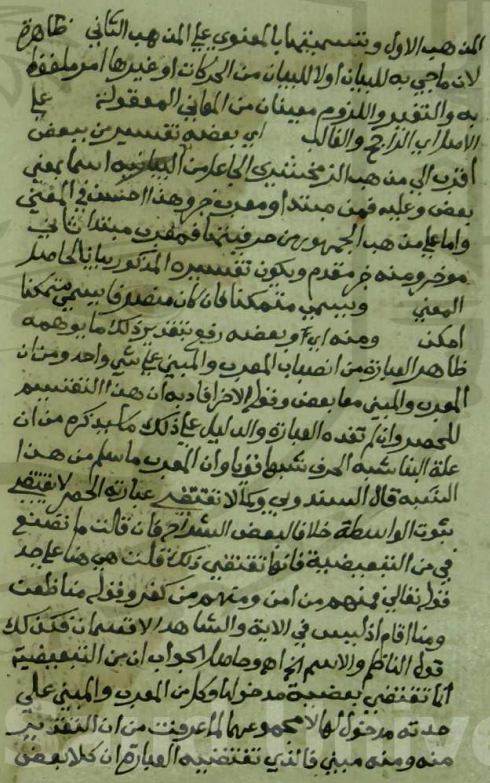 المذهب الاول وتسميتها بالمعنوي على المذهب الثاني ظاهرة
لان ما جي به للبيان اولا للبيان من الحركات او غيرها امر ملفوظ
به والتغير واللزوم معينان من المعاني المعقولة على
الاصل اي الراجح والغالب اي بعضه تفسير من ببعض
اقرب الى مذهب الزمخشري الجاعل من اسما بمعنى
بعض وعليه فمن مبتدا ومعرب خبر وهذا احسن في المعنى
واما على مذهب الجمهور من حرفيتها فمعرب مبتدا ثاني
موخر ومنه خبر مقدم ويكون تفسيره المذكور بيانا لحاصل
المعنى ويسمى متمكنا فان كان منصرفا يسمى متمكنا
امكن ومنه اي وبعضه رفع بتقدير ذلك ما يوهمه
ظاهر العبارة من انصباب المعرب والمبني على شي واحد ومن ان
المعرب والمبني معا بعض وقوله الاخر افاد به ان هذا التقسيم
للحصر وان لم تفده العبارة والدليل على ذلك ما سيذكره من ان
علة البنا شبه الحرف شبها قويا وان المعرب ما سلم من هذا
الشبه قال السندوبي وكما لا تقتضي عبارته الحصر لا تقتضي
ثبوت الواسطة خلافا لبعض الشراح فان قالت ما تصنع
في من التبعيضية فانها تقتضي ذلك قلت هي هنا على حد
قوله تعالى فمنهم من امن ومنهم من كفر وقوله منا ظعن
ومنا اقام اذ ليس في الاية والشاهد الا قسمان فكذلك
قول الناظم والاسم الخ اهـ وحاصل الجواب ان من التبعيضية
انما تقتضي بعضية مدخولها وكل من المعرب والمبني على
حدته مدخول لها لا مجموعهما لما عرفت من ان التقدير
منه ومنه مبني فالذي تقتضيه العبارة ان كلا بعض